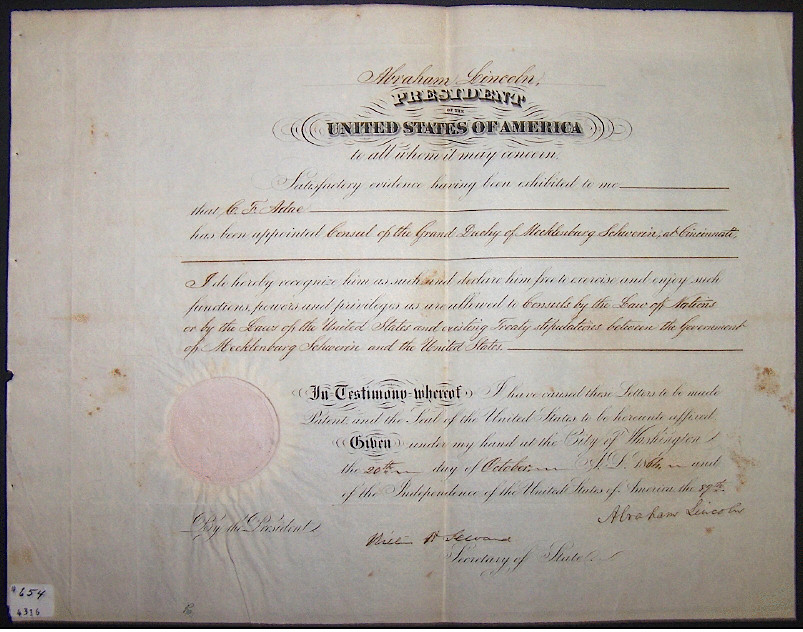 Abraham Lincoln,
PRESIDENT
OF THE
UNITED STATES OF AMERICA
to all whom it may concern.
Satisfactory evidence having been exhibited to me
that C. F. Adae
has been appointed Consul of the Grand Duchy of Mecklenburg Schwerin, at Cincinnati,
I do hereby recognize him as such and declare him free to exercise and enjoy such
functions, powers and privileges as are allowed to Consuls by the Law of Nations
or by the Laws of the United States and existing Treaty stipulations between the Government
of Mecklenburg Schwerin and the United States.
In Testimony whereof I have caused these Letters to be made
Patent, and the Seal of the United States to be hereunto affixed.
Given under my hand at the City of Washington
the 20th day of October A.D. 1864 and
of the Independence of the United States of America, the 89th.
Abraham Lincoln
By the President
William H Seward
Secretary of State
#654
4316